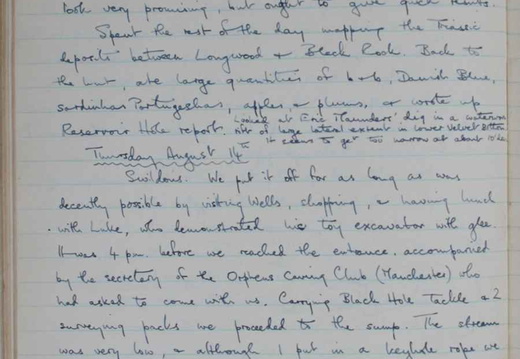 look very promising, but ought to give quick results.
Spent the rest of the day mapping the Triassic
deposits between Longwood & Black Rock. Back to
the hut, ate large quantities of b & b, Danish Blue,
sardinhas Portugeshas, apples & plums, & wrote up
Reservoir Hole report. Looked at Eric Flaunders' dig in a
rift of large lateral extent in lower Velvet Bottom
It seems to get too narrow at about
Thursday August 14th
Swildons. We put it off for as long as was
decently possible by visiting Wells, shopping, & having lunch
with Luke, who demonstrated his toy excavator with glee.
It was 4 pm. before we reached the entrance, accompanied
by the secretary of the Orpheus Caving Club (Manchester) who
had asked to come with us. Carrying Black Hole Tackle & 2
surveying packs we proceeded to the sump. The stream
was very low, & although I put in a keyhole rope we